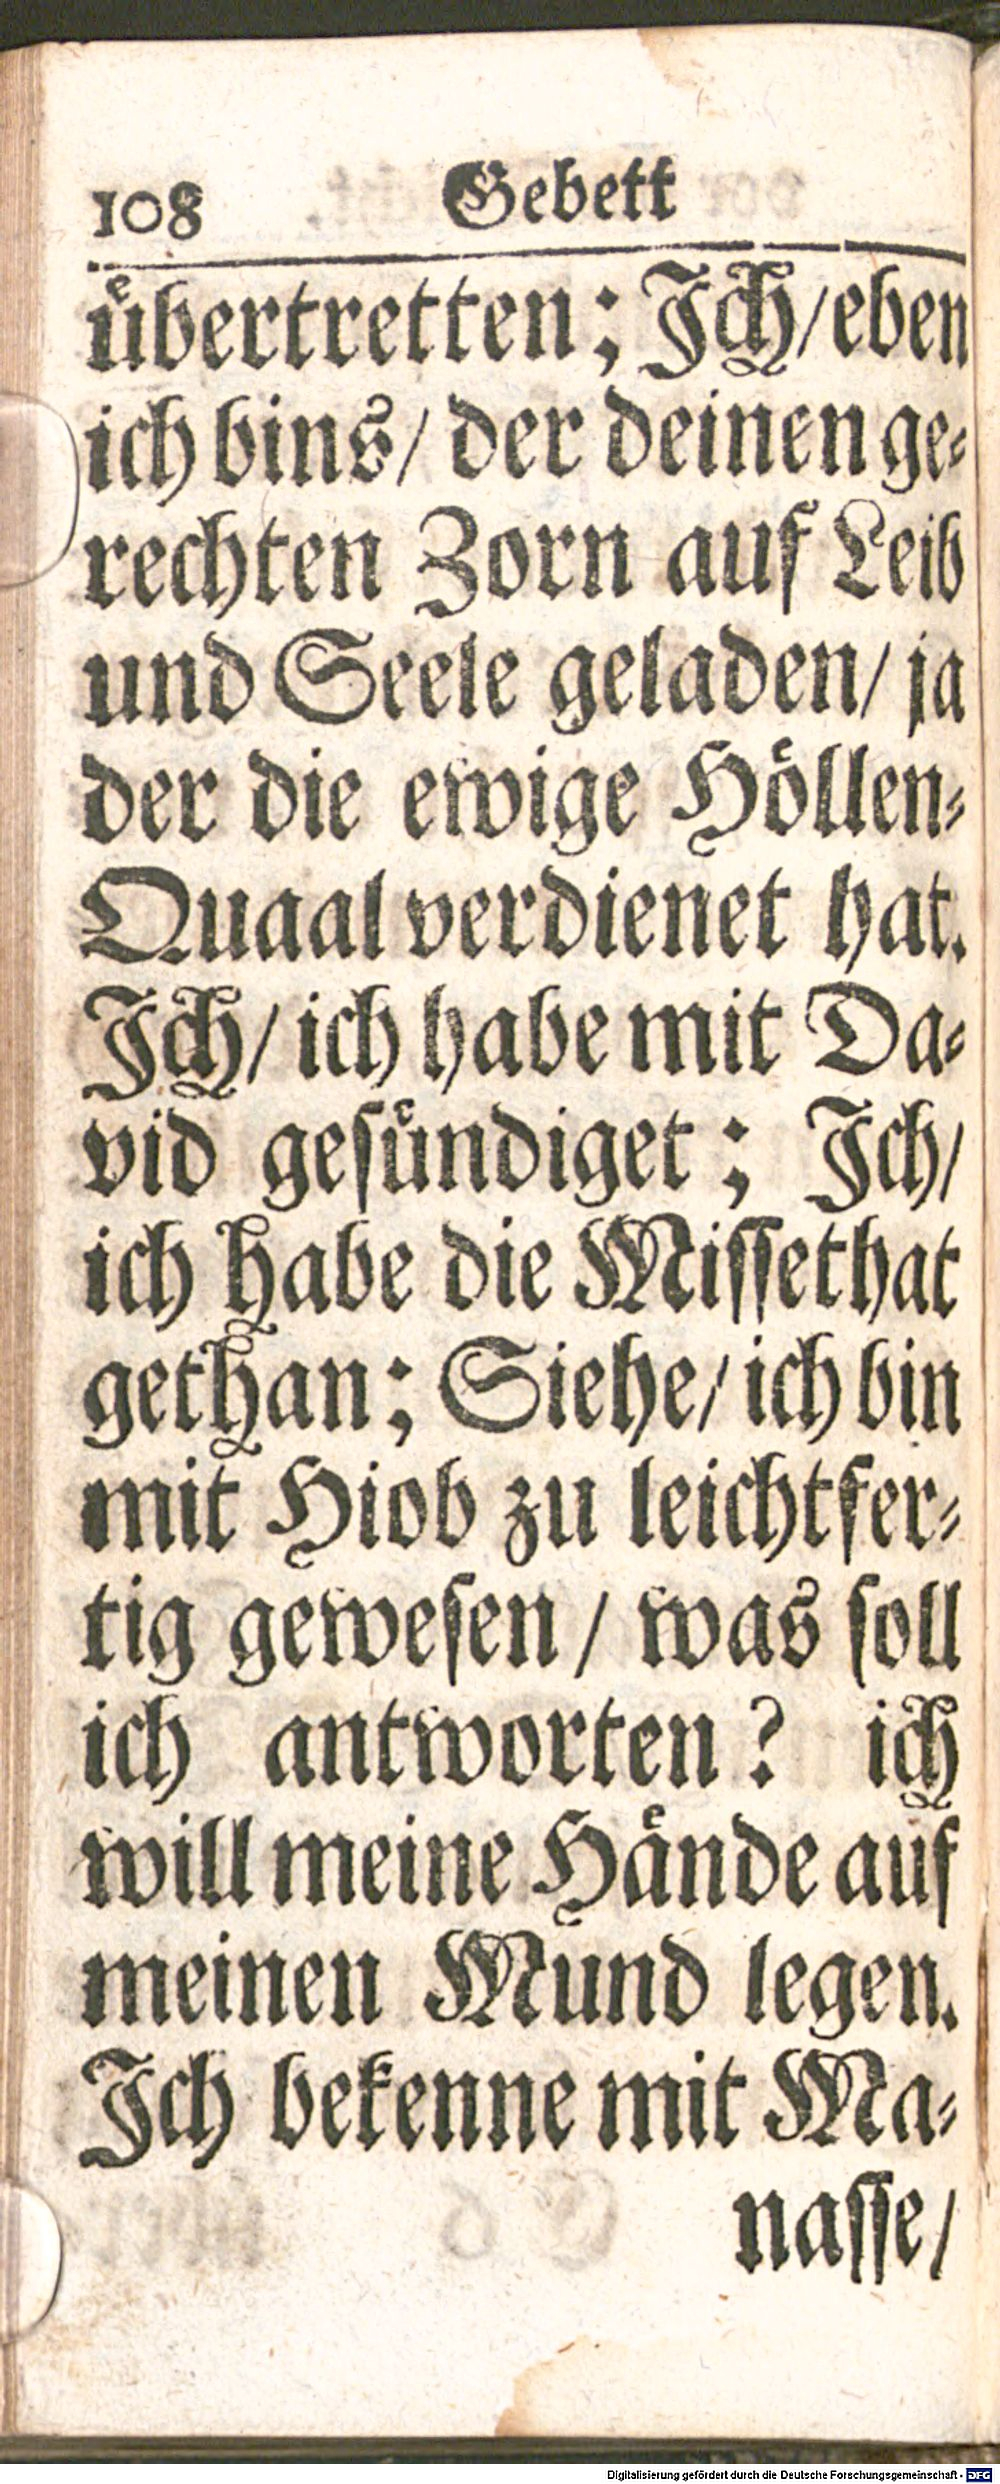 108 Gebett
uͤbertretten; Ich/ eben
ich bins/ der deinen ge⸗
rechten Zorn auf Leib
und Seele geladen/ ja
der die ewige Hoͤllen⸗
Quaal verdienet hat.
Ich/ ich habe mit Da⸗
vid geſuͤndiget; Ich/
ich habe die Miſſethat
gethan; Siehe/ ich bin
mit Hiob zu leichtfer⸗
tig geweſen/ was ſoll
ich antworten? ich
will meine Haͤnde auf
meinen Mund legen.
Ich bekenne mit Ma⸗
naſſe/
Digitalisierung gefördert durch die Deutsche Forschungsgemeinschaft - DFG